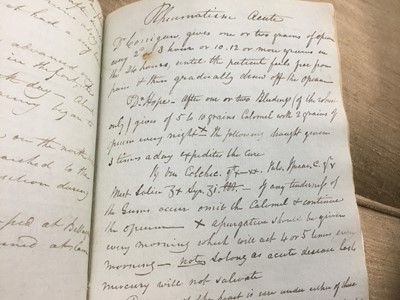 Rheumatism Acute
Dr Corrigan gives one or two grains of opium
every 2d or 3 hour or 10. 12 or more grains in
the 24 hours, until the patient feels free from
pain & then gradually draw off the opium
Dr Hope - After one or two Bleedings (if the
only) gives of 5 to 10 grains Calomel with 2 grains of
opium every night & the following draught given
3 times a day expedites the cure
Colchic. Pulv.
Mist. Salin Syr. If any tenderness of
the Gums occur omit the Calomel & continue
the opium & a purgative should be given
every morning which will act 4 or 5 times every
morning - note so long as acute disease lasts
mercury will not salivate
the heart is rare under either of these
had a
day. A
began to
on the
marched to the
during
at
at